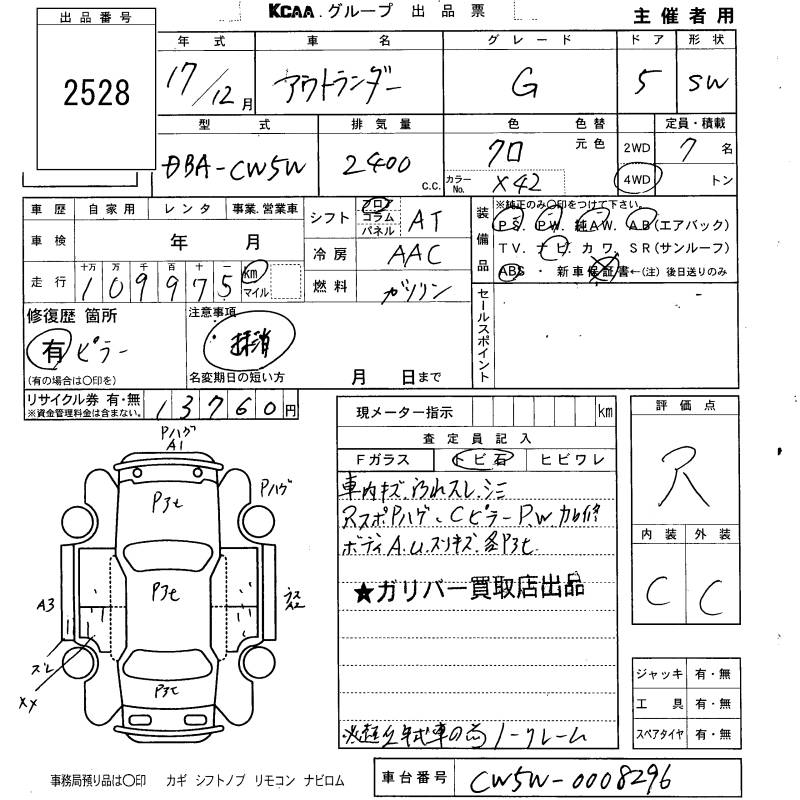 KCAA.グループ 出品票
主催者用
出品番号
2528
年式 車名 グレード ドア 形状
17/12月 アウトランダー G 5 SW
型式 排気量 色 色替 定員・積載
DBA-CW5W 2400 C.C. クロ 元色 2WD 7名
カラーNo. X42 4WD トン
車歴 自家用 レンタ 事業.営業車
車検 年 月
走行 十万 万 千 百 十 一
109975 km マイル
シフト フロア コラム パネル AT
冷房 AAC
燃料 ガソリン
装備品
※純正のみ○印をつけて下さい。
PS. PW. 純AW. AB(エアバック)
TV. ナビ. カワ. SR(サンルーフ)
ABS ・ 新車保証書←(注)後日送りのみ
セールスポイント
修復歴 箇所
有 ピラー
(有の場合は○印を)
注意事項
抹消
名変期日の短い方 月 日まで
リサイクル券 有・無 13760円
※資金管理料金は含まない。
現メーター指示 km
査定員記入
Fガラス トビ石 ヒビワレ
車内キズ.汚れスレ.シミ
RスポPハゲ、Cピラー P.W 加修
ボディ A.U.スリキズ.各P3t.
★ガリバー買取店出品
※超低年式車の為ノークレーム
評価点
R
内装 外装
C C
PハゲA1
Pハゲ
P3t
P3t
P3t
A3
スレ
XX
ジャッキ 有・無
工具 有・無
スペアタイヤ 有・無
事務局預り品は○印 カギ シフトノブ リモコン ナビロム
車台番号 CW5W-0008296